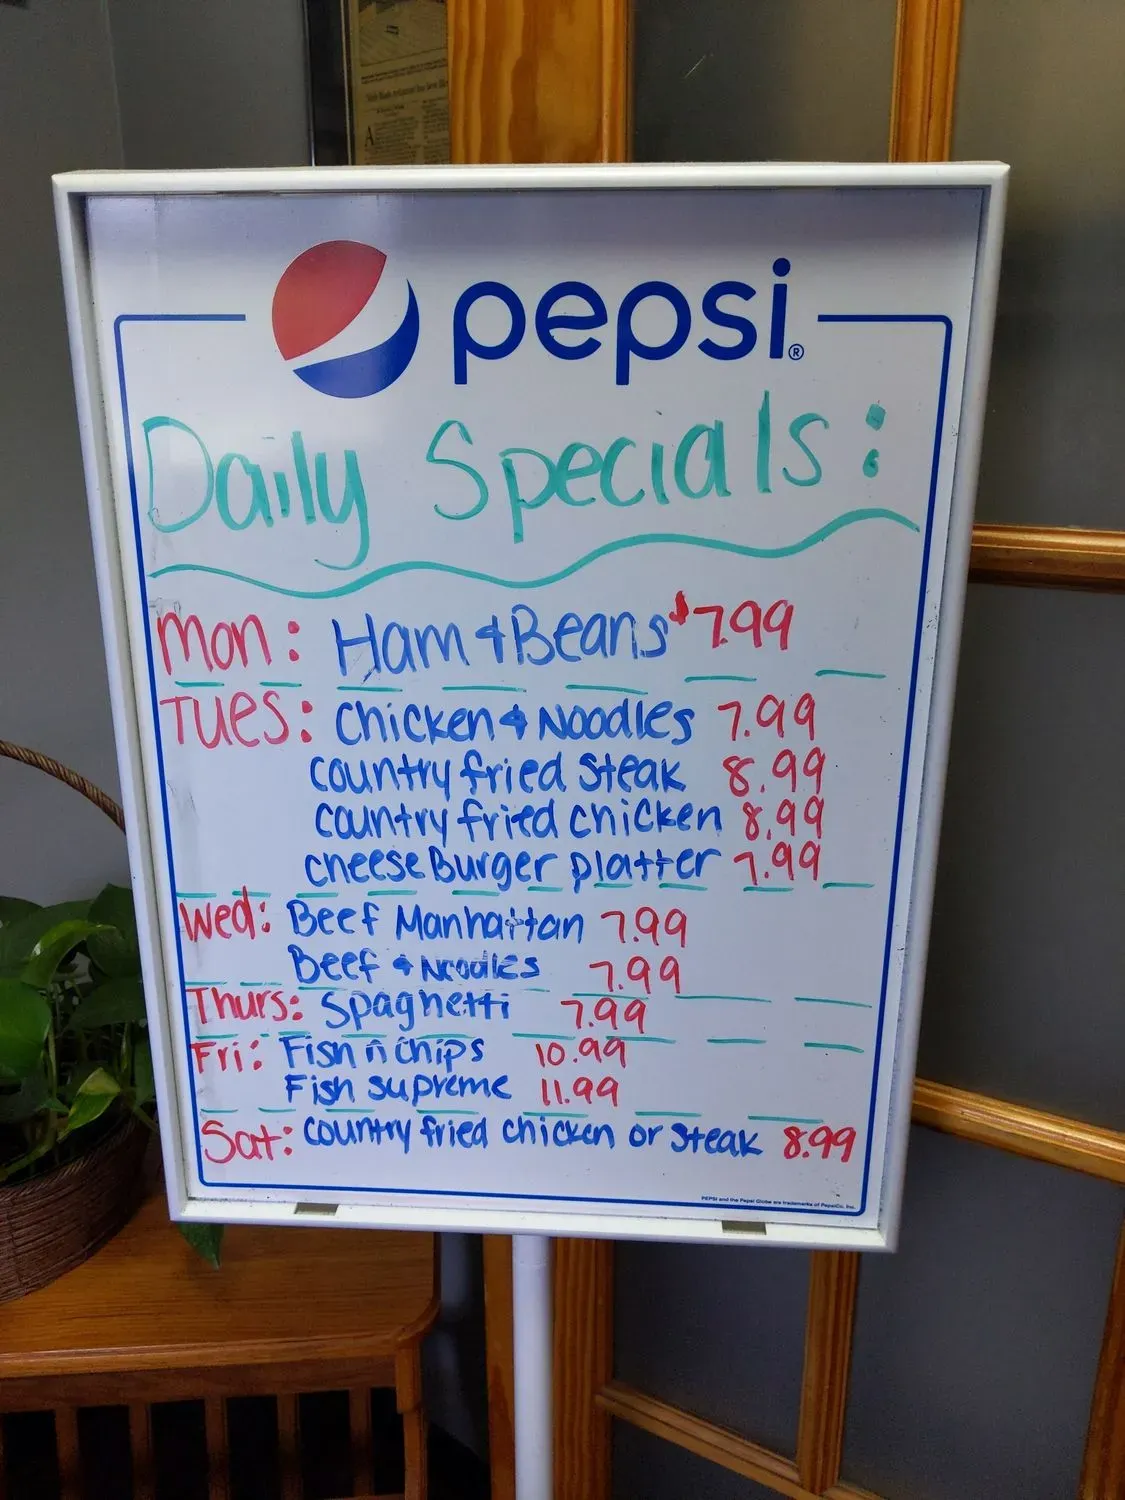 pepsi®
Daily Specials:
Mon: Ham & Beans $7.99
Tues: Chicken & Noodles 7.99
country fried steak 8.99
country fried chicken 8.99
cheeseBurger platter 7.99
Wed: Beef Manhattan 7.99
Beef & Noodles 7.99
Thurs: Spaghetti 7.99
Fri: Fish n chips 10.99
Fish supreme 11.99
Sat: country fried chicken or steak 8.99
PEPSI and the Pepsi Globe are trademarks of PepsiCo, Inc.